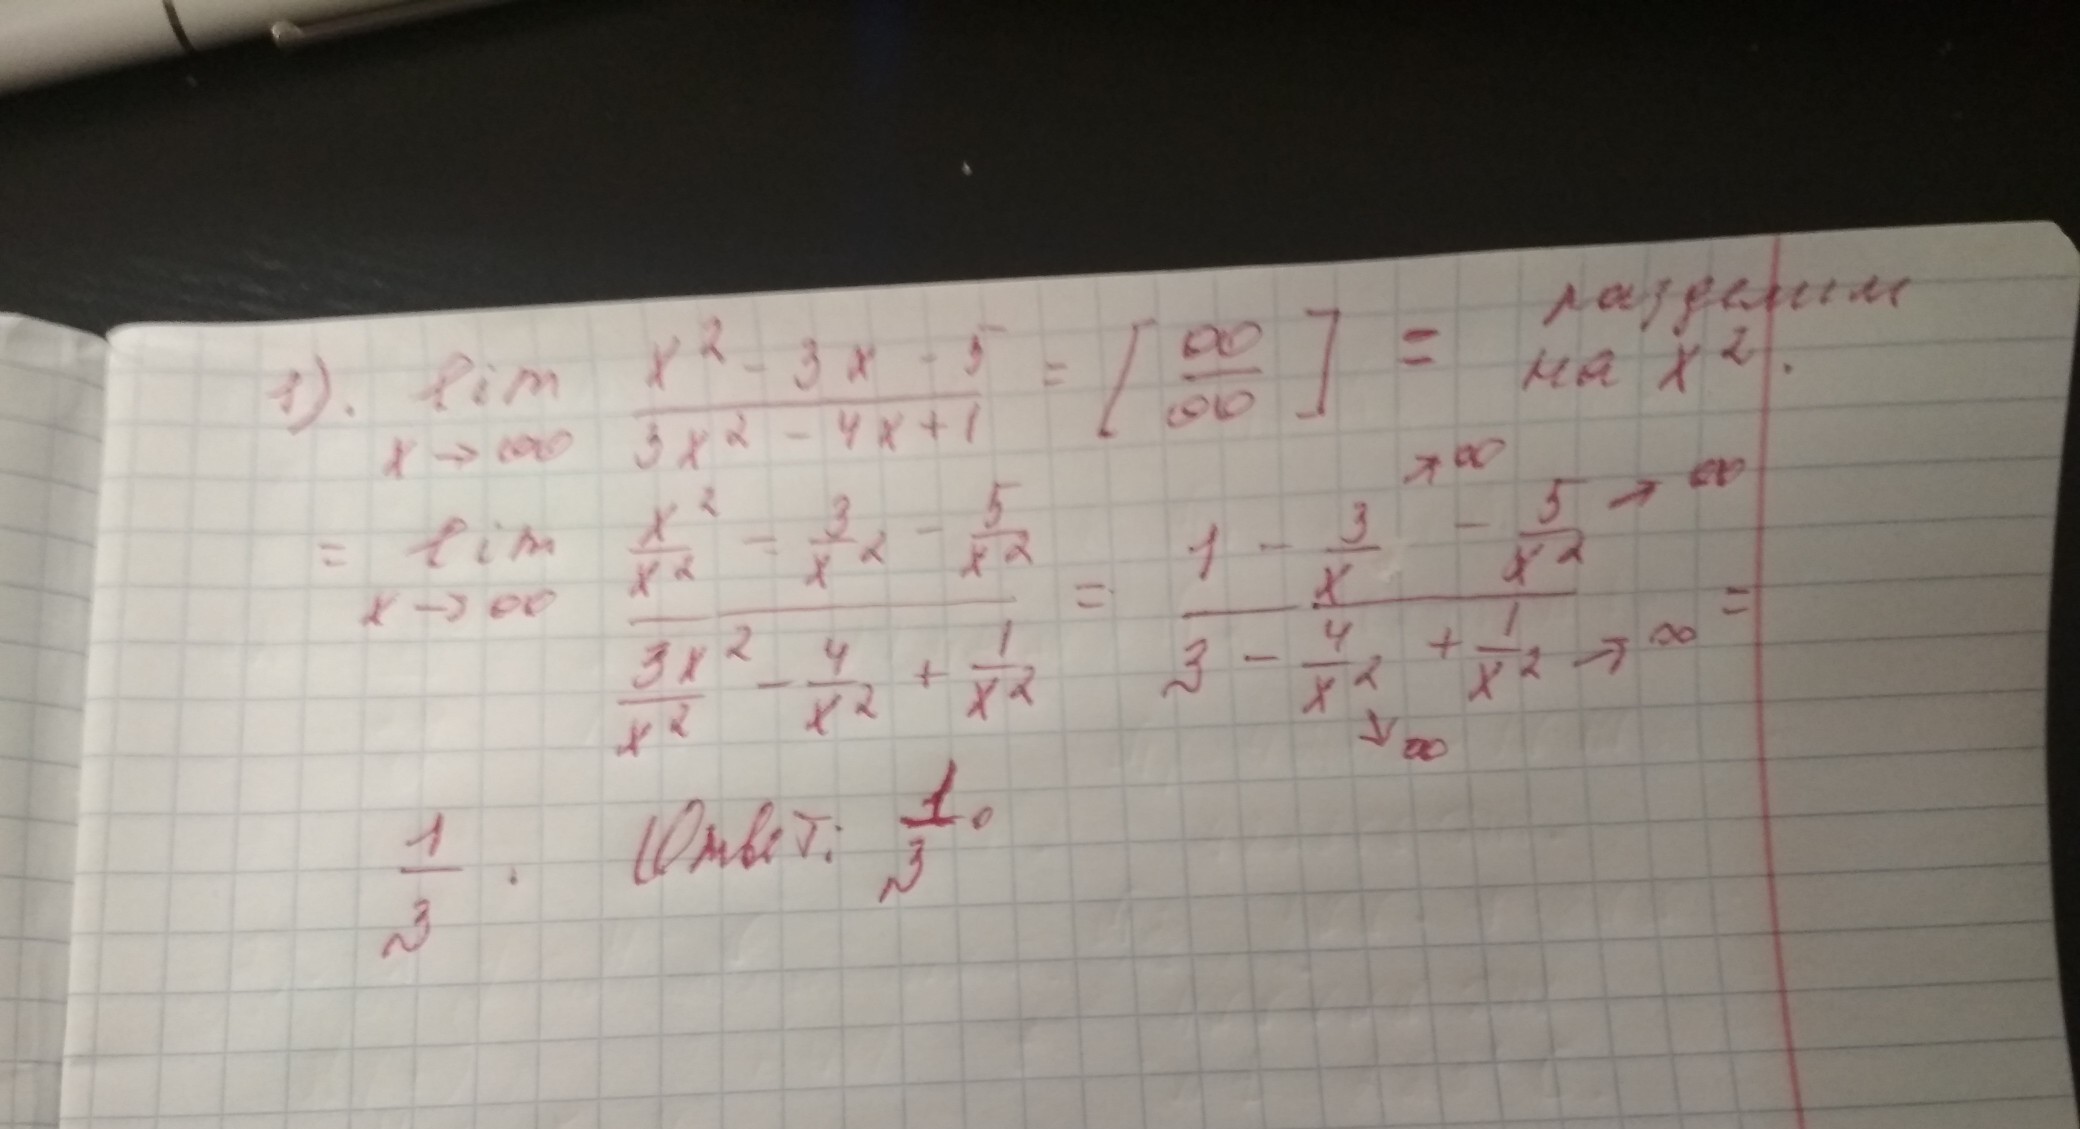 1). lim x→∞ (x² - 3x - 5)/(3x² - 4x + 1) = [∞/∞] = разделим на x².
= lim x→∞ (x²/x² - 3/x² - 5/x²)/(3x²/x² - 4/x² + 1/x²) = (1 - 3/x →∞ - 5/x² → ∞)/(3 - 4/x² →∞ + 1/x² → ∞) =
1/3. Ответ: 1/3.